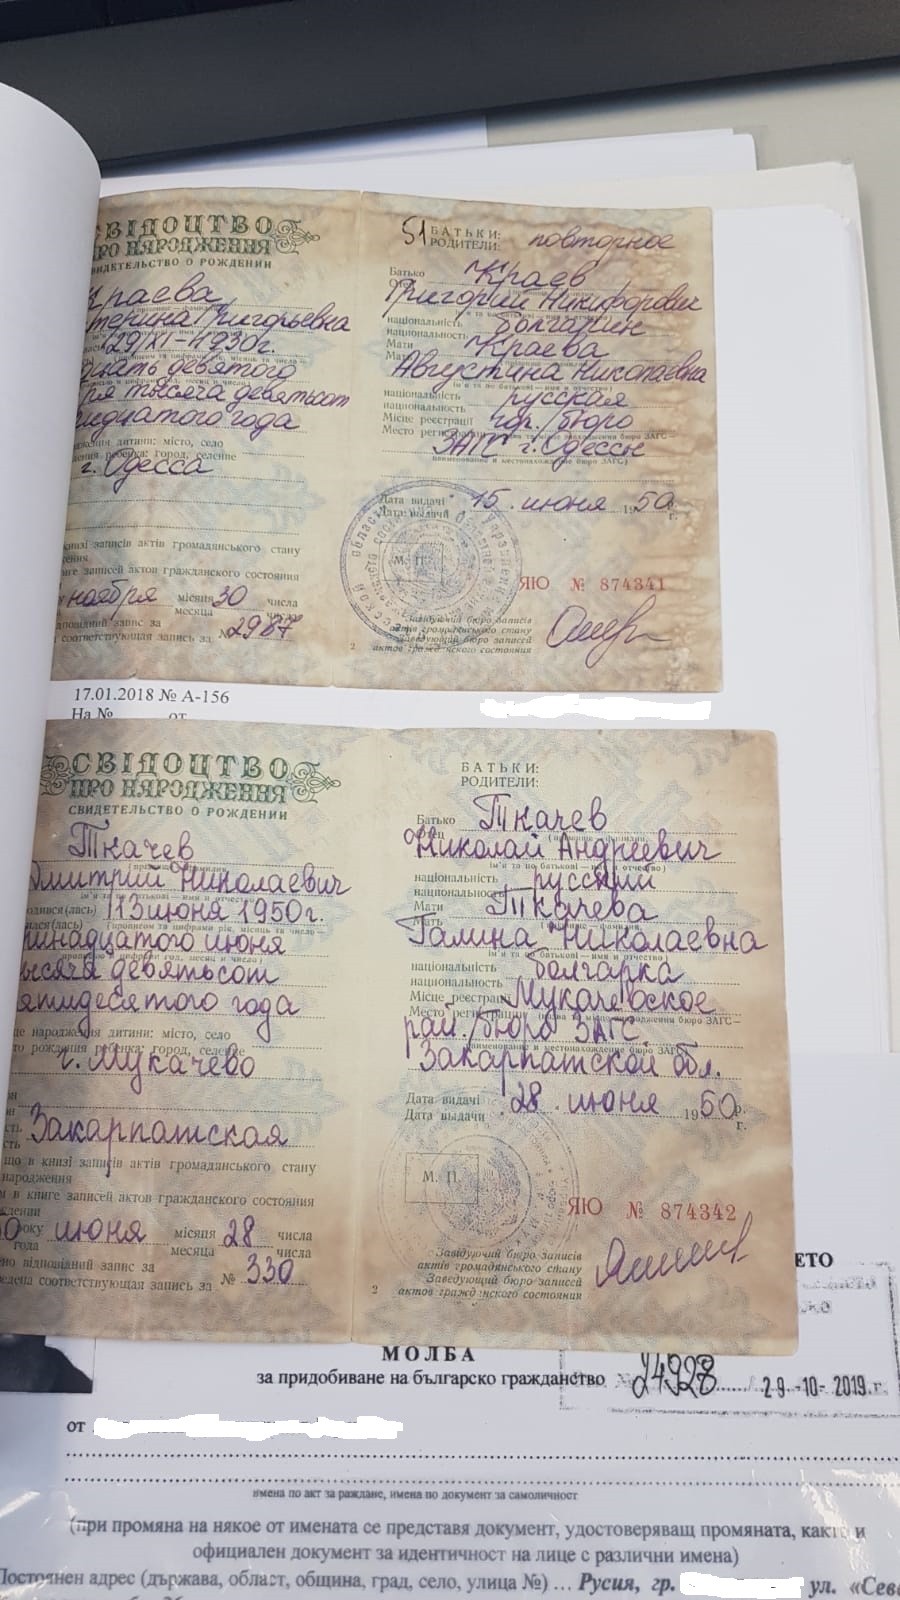 СВІДОЦТВО
ПРО НАРОДЖЕННЯ
СВИДЕТЕЛЬСТВО О РОЖДЕНИИ
Краева
терина Григорьевна
29/XI-1930г.
дцать девятого
ря тысяча девятьсот
ридцатого года
ження дитини: місто, село
ребенка: город, селение
г. Одесса
книзі записів актів громадянського стану
ге записей актов гражданского состояния
ноября місяця 30 числа
месяца числа
повідний запис за
соответствующая запись за № 2987
51 БАТЬКИ: повторное
РОДИТЕЛИ:
Батько Краев
Григорий Никифорович
національність болгарин
национальность
Мати Краева
Августина Николаевна
національність русская
национальность
Місце реєстрації гор./бюро
Место
ЗАГС г. Одессы
Дата видачі 15 июня 1950
Дата выдачи г.
М. П.
ЯЮ № 874341
Завідуючий бюро записів
актів громадянського стану
Заведующий бюро записей
2 актов гражданского состояния
17.01.2018 № А-156
На № от
СВІДОЦТВО
ПРО НАРОДЖЕННЯ
СВИДЕТЕЛЬСТВО О РОЖДЕНИИ
Ткачев
Дмитрий Николаевич
одився(лась) 13 июня 1950г.
ился(лась)
ринадцатого июня
ысяча девятьсот
ятидесятого года
це народження дитини: місто, село
то рождения ребенка: город, селение
г. Мукачево
Закарпатская
що в книзі записів актів громадянського стану
народження
в книге записей актов гражданского состояния
року июня місяця 28 числа
года месяца числа
но відповідний запис за
ведена соответствующая запись за № 330
БАТЬКИ:
РОДИТЕЛИ:
Батько Ткачев
Николай Андреевич
національність русский
национальность
Мати Ткачева
Мать
Галина Николаевна
національність болгарка
национальность
Місце реєстрації Мукачевское
Место
рай./бюро ЗАГС
Закарпатской обл.
Дата видачі 28 июня 1950 р.
Дата выдачи г.
М. П.
ЯЮ № 874342
Завідуючий бюро записів
актів громадянського стану
Заведующий бюро записей
2 актов гражданского состояния
ЕТО
МОЛБА
за придобиване на българско гражданство № 24928 29-10-2019 г.
от
имена по акт за раждане, имена по документ за самоличност
(при промяна на някое от имената се представя документ, удостоверяващ промяната, както и
официален документ за идентичност на лице с различни имена)
Постоянен адрес (държава, област, община, град, село, улица №) ... Русия, гр. ул. «Севе